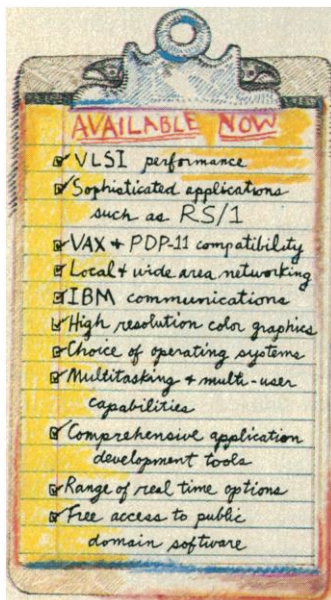 AVAILABLE NOW
VLSI performance
Sophisticated applications
such as RS/1
VAX + PDP-11 compatibility
Local + wide area networking
IBM communications
High resolution color graphics
Choice of operating systems
Multitasking + multi-user
capabilities
Comprehensive application
development tools
Range of real time options
Free access to public
domain software